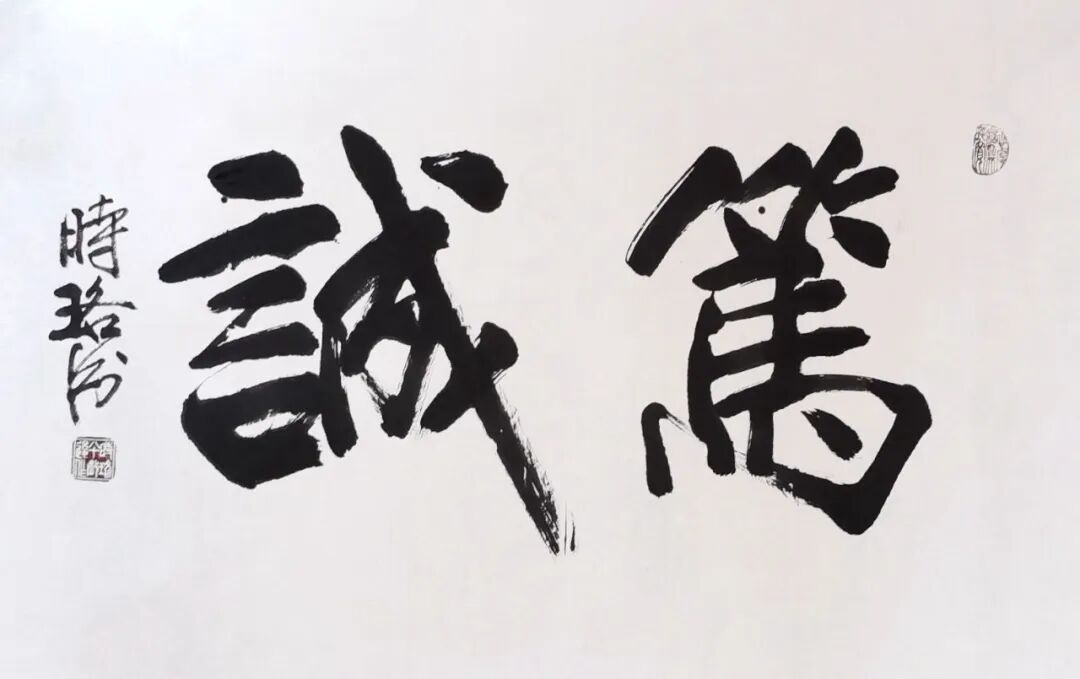 篤誠
時珞